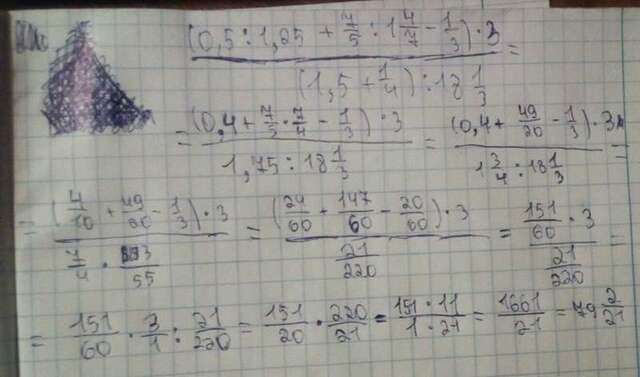 (0,5 : 1,25 + 7/5 : 1 4/7 - 1/3) · 3 / (1,5 + 1/4) : 18 1/3 =
= (0,4 + 7/5 · 7/4 - 1/3) · 3 / 1,75 : 18 1/3 = (0,4 + 49/20 - 1/3) · 3 / 1 3/4 : 18 1/3
= (4/10 + 49/20 - 1/3) · 3 / 7/4 · 3/55 = (24/60 + 147/60 - 20/60) · 3 / 21/220 = 151/60 · 3 / 21/220 =
= 151/60 · 3/1 : 21/220 = 151/20 · 220/21 = 151 · 11 / 1 · 21 = 1661/21 = 79 2/21